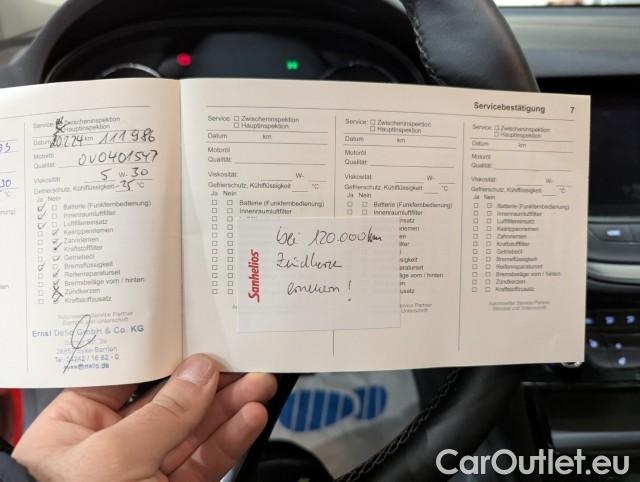 Servicebestätigung 7
Service: Zwischeninspektion
Hauptinspektion
Datum 20.2.24 km 111 986
Motoröl
Qualität: OV0401547
Viskosität: 5 W- 30
Gefrierschutz, Kühlflüssigkeit -25 °C
Ja Nein
Batterie (Funkfernbedienung)
Innenraumluftfilter
Luftfiltereinsatz
Keilrippenriemen
Zahnriemen
Kraftstofffilter
Getriebeöl
Bremsflüssigkeit
Reifenreparaturset
Bremsbeläge vorn / hinten
Zündkerzen
Kraftstoffzusatz
Autorisierter Service Partner
Ernst Dello GmbH & Co. KG
Service: Zwischeninspektion
Hauptinspektion
Datum km
Motoröl
Qualität:
Viskosität: W-
Gefrierschutz, Kühlflüssigkeit °C
Ja Nein
Batterie (Funkfernbedienung)
Innenraumluftfilter
Service: Zwischeninspektion
Hauptinspektion
Datum km
Motoröl
Qualität:
Viskosität: W-
Gefrierschutz, Kühlflüssigkeit °C
Ja Nein
Batterie (Funkfernbedienung)
Innenraumluftfilter
Luftfiltereinsatz
Keilrippenriemen
Zahnriemen
Kraftstofffilter
Getriebeöl
Bremsflüssigkeit
Reifenreparaturset
Bremsbeläge vorn / hinten
Zündkerzen
Kraftstoffzusatz
Autorisierter Service Partner
Stempel und Unterschrift
Service: Zwischeninspektion
Hauptinspektion
Datum km
Motoröl
Qualität:
Viskosität: W-
Gefrierschutz, Kühlflüssigkeit °C
Ja Nein
Batterie (Funkfernbedienung)
Innenraumluftfilter
Luftfiltereinsatz
Keilrippenriemen
Zahnriemen
Kraftstofffilter
Getriebeöl
Bremsflüssigkeit
Reifenreparaturset
Bremsbeläge vorn / hinten
Zündkerzen
Kraftstoffzusatz
Autorisierter Service Partner
Stempel und Unterschrift
Sanhelios
bei 120.000 km
Zündkerze
erneuern!
CarOutlet.eu